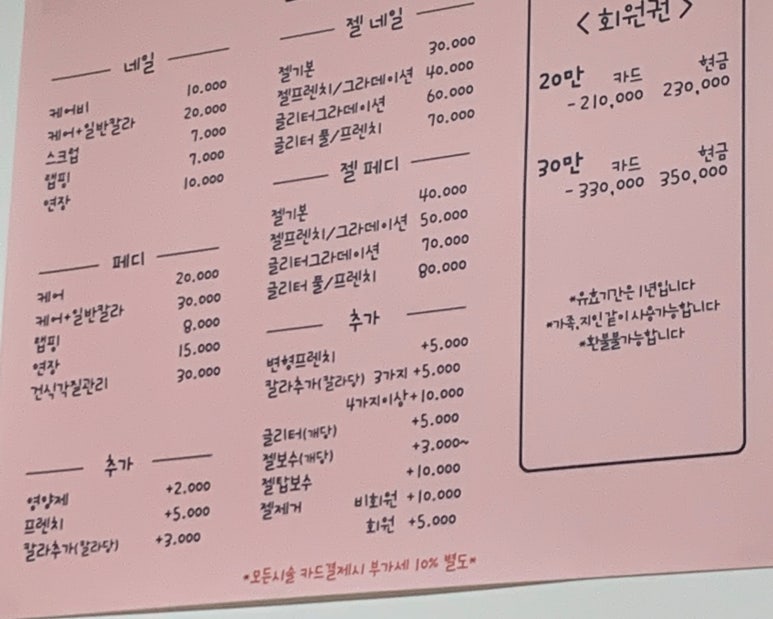 네일
케어비 10.000
케어+일반칼라 20.000
스크럽 7.000
랩핑 7.000
연장 10.000
페디
케어 20.000
케어+일반칼라 30.000
랩핑 8.000
연장 15.000
건식각질관리 30.000
추가
영양제 +2.000
프렌치 +5.000
칼라추가(칼라당) +3.000
젤 네일
젤기본 30.000
젤프렌치/그라데이션 40.000
글리터그라데이션 60.000
글리터 풀/프렌치 70.000
젤 페디
젤기본 40.000
젤프렌치/그라데이션 50.000
글리터그라데이션 70.000
글리터 풀/프렌치 80.000
추가
변형프렌치 +5.000
칼라추가(칼라당) 3가지 +5.000
4가지이상+10.000
글리터(개당) +5.000
젤보수(개당) +3.000~
젤탑보수 +10.000
젤제거 비회원 +10.000
회원 +5.000
*모든시술 카드결제시 부가세 10% 별도*
<회원권>
20만 카드 현금
-210,000 230,000
30만 카드 현금
-330,000 350,000
*유효기간은 1년입니다
*가족,지인 같이 사용가능합니다
*환불불가능합니다